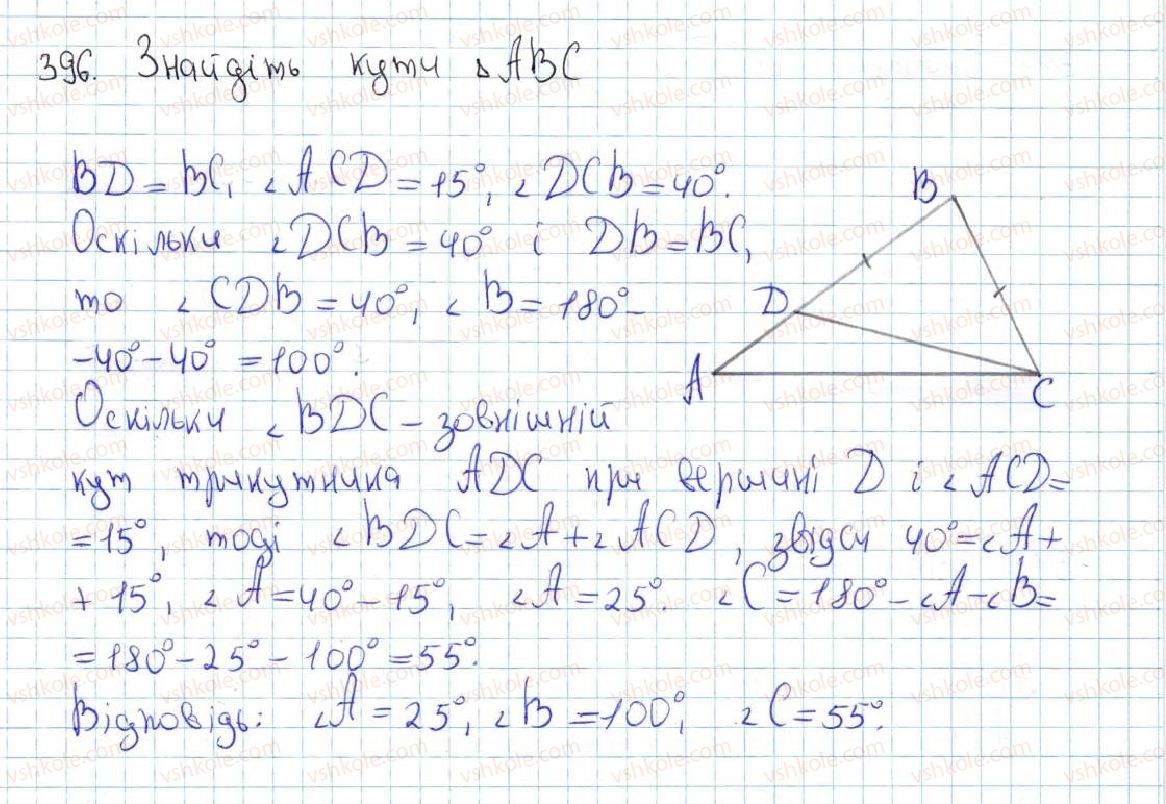 396. Знайдіть кути △ABC
BD = BC, ∠ACD = 15°, ∠DCB = 40°.
Оскільки ∠DCB = 40° і DB = BC,
то ∠CDB = 40°, ∠B = 180° –
– 40° – 40° = 100°.
Оскільки ∠BDC – зовнішній
кут трикутника ADC при вершині D і ∠ACD =
= 15°, тоді ∠BDC = ∠A + ∠ACD, звідси 40° = ∠A +
+ 15°, ∠A = 40° – 15°, ∠A = 25°. ∠C = 180° – ∠A – ∠B =
= 180° – 25° – 100° = 55°.
Відповідь: ∠A = 25°, ∠B = 100°, ∠C = 55°.
B
D
A
C
vshkole.com